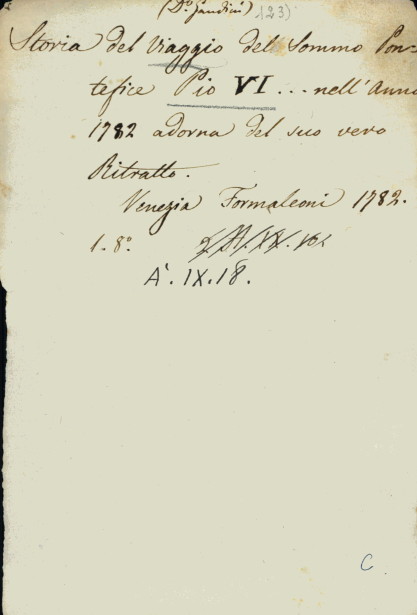 123)
Storia del Viaggio del Sommo Pon-
tefice Pio VI ... nell'Anno
1782 adorna del suo vero
Ritratto.
Venezia Formaleoni 1782.
1. 8º.
A'. IX. 18.
C